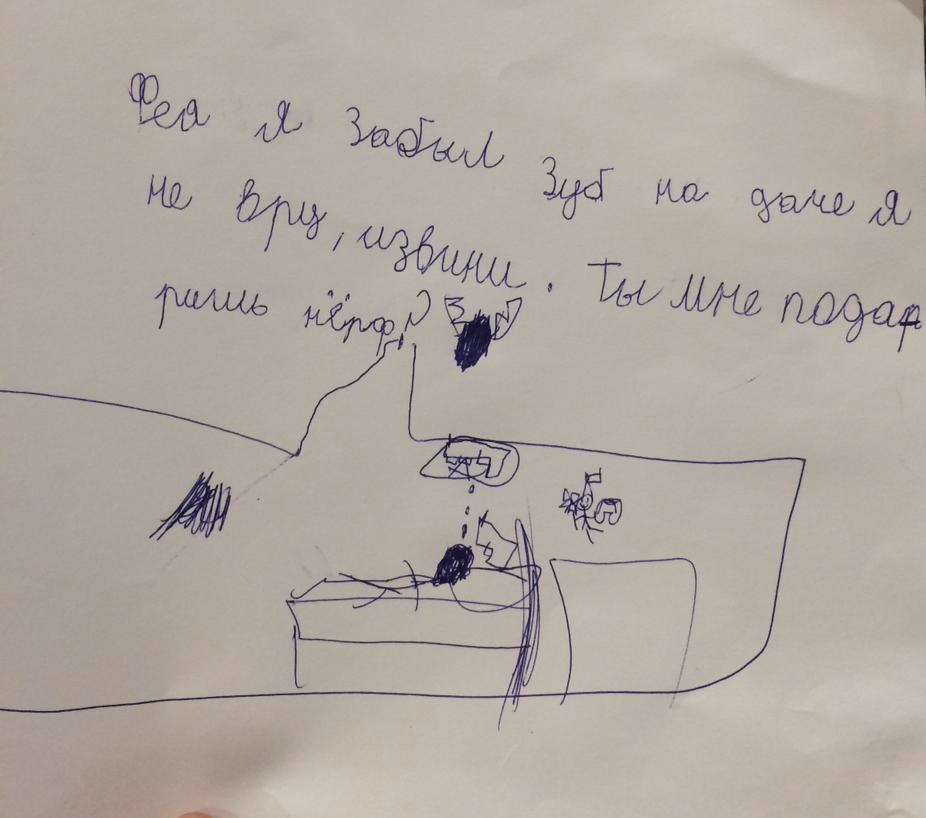 Фея я забыл зуб на даче я
не врц, извини. Ты мне подар
ришь нёрф?